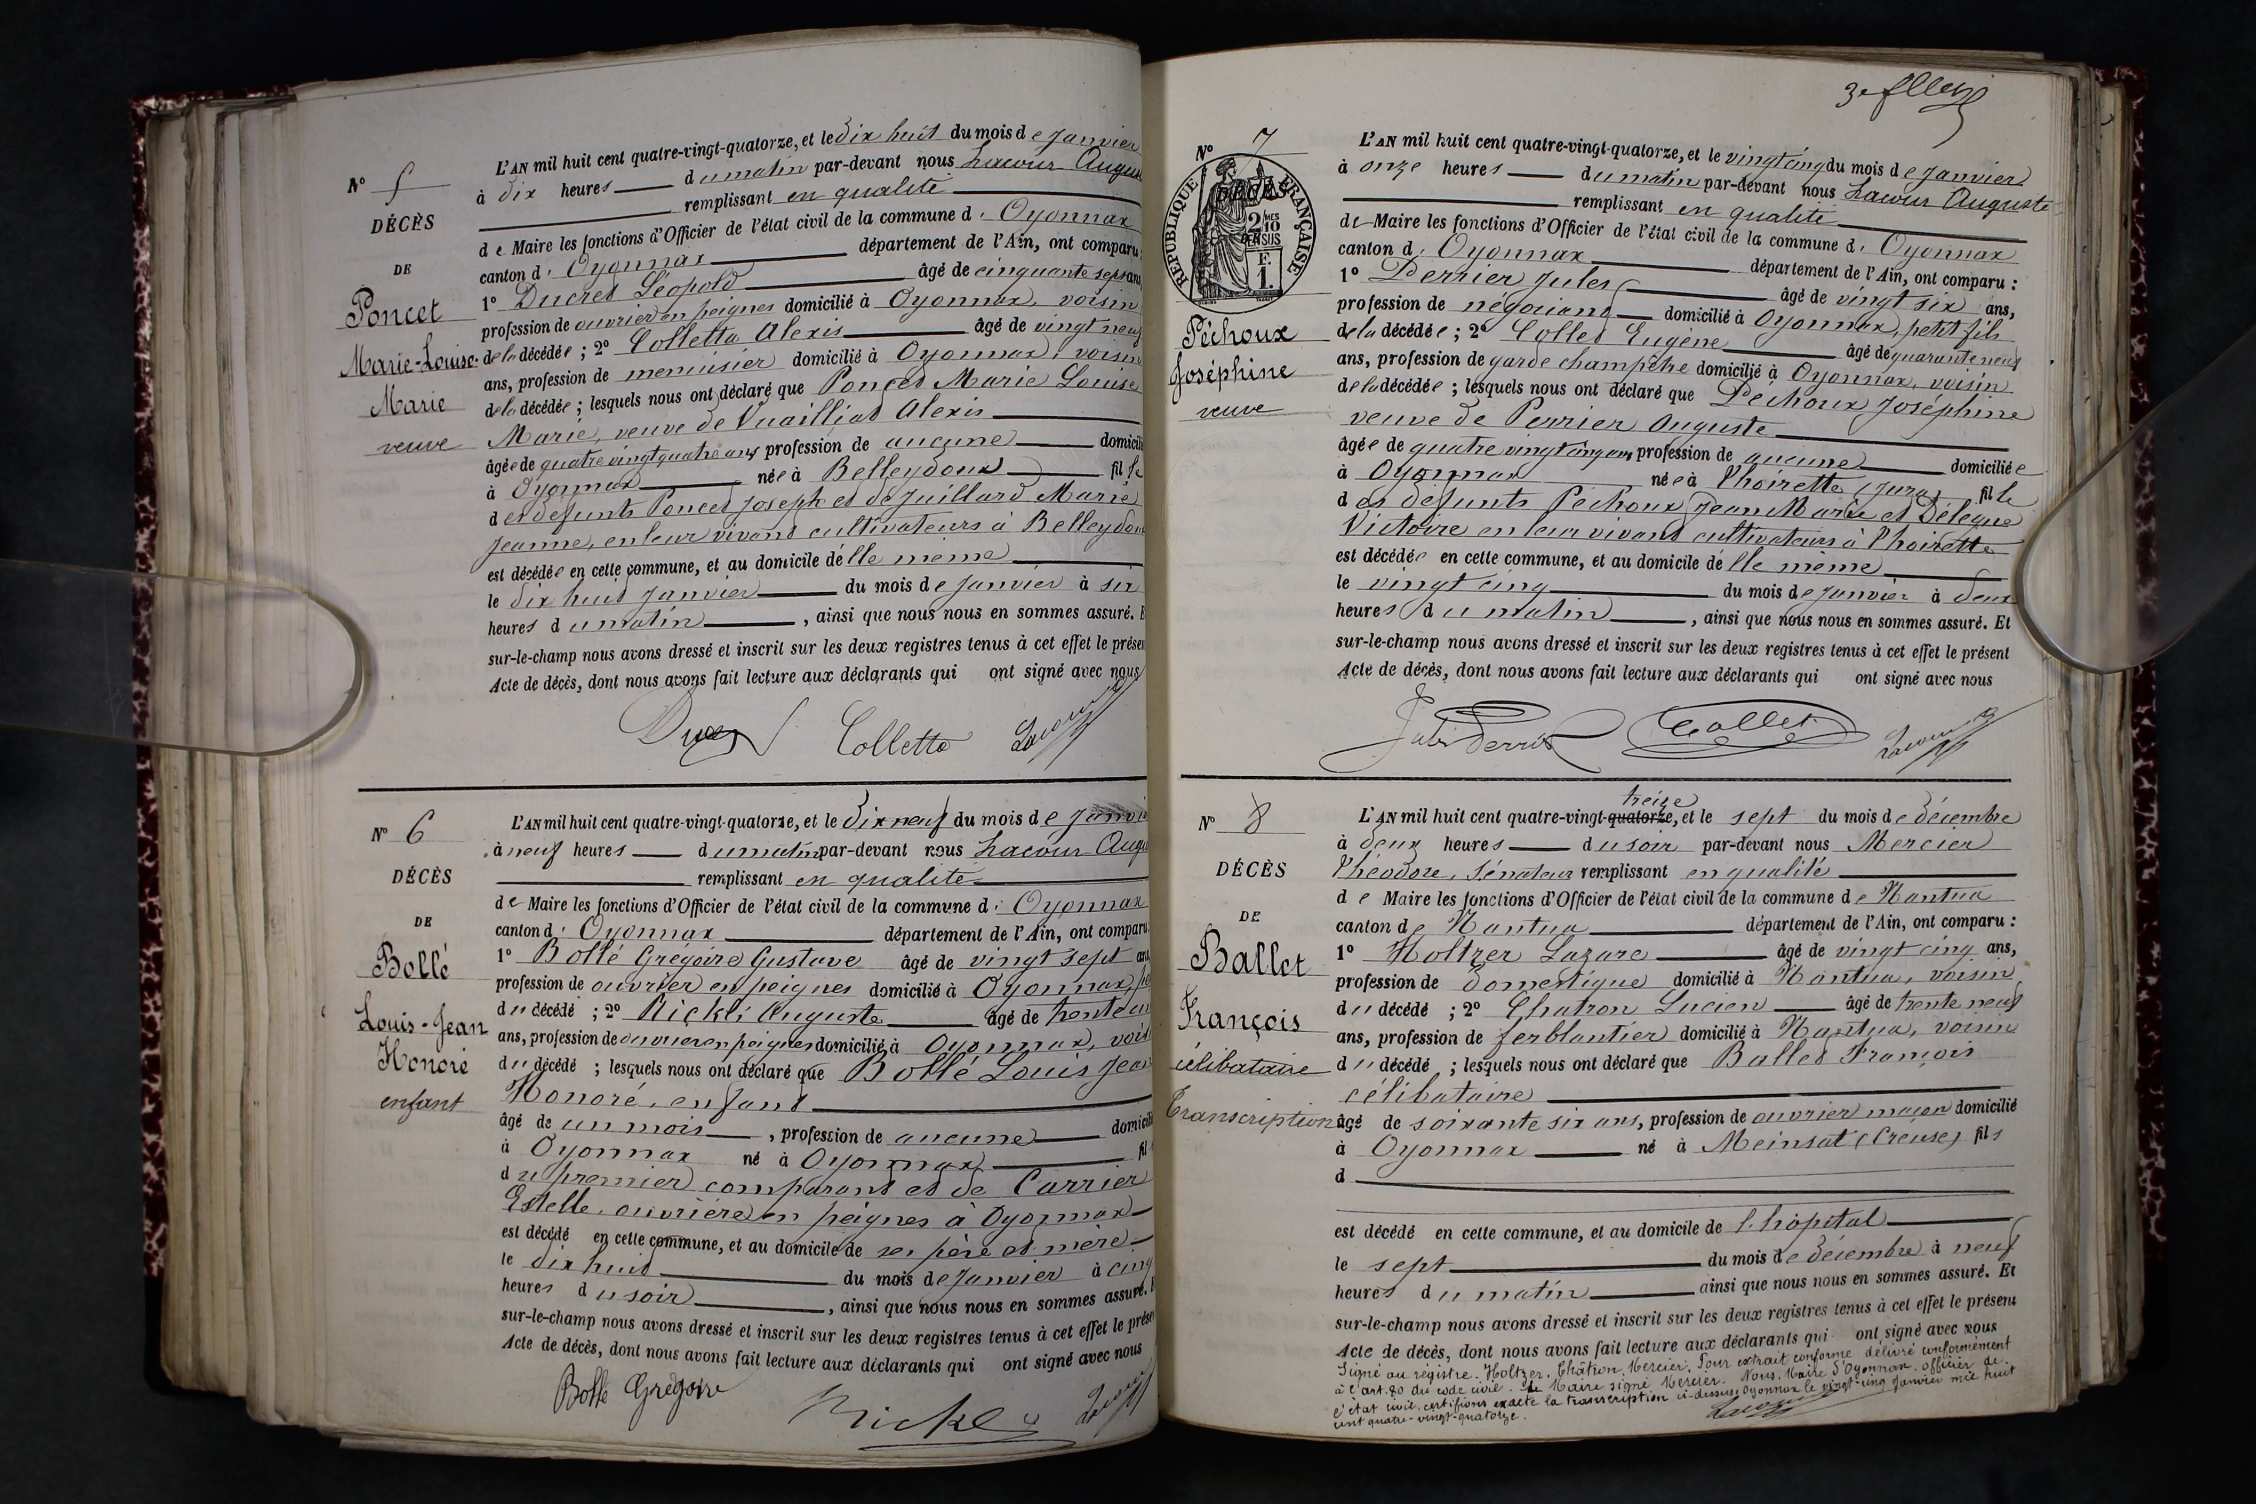 N° 5
DÉCÈS
DE
Poncet
Marie-Louise-
Marie
veuve
L'AN mil huit cent quatre-vingt-quatorze, et le dix huit du mois de janvier
à dix heures du matin par-devant nous Lacour Auguste
remplissant en qualité
de Maire les fonctions d'Officier de l'état civil de la commune d' Oyonnax
canton d' Oyonnax département de l'Ain, ont comparu
1° Ducret Léopold âgé de cinquante sept ans
profession de ouvrier en peignes domicilié à Oyonnax, voisin
de la décédée ; 2° Colletta Alexis âgé de vingt neuf
ans, profession de menuisier domicilié à Oyonnax, voisin
de la décédée ; lesquels nous ont déclaré que Poncet Marie Louise
Marie, veuve de Vuaillat Alexis
âgée de quatre vingt quatre ans profession de aucune domicilié
à Oyonnax née à Belleydoux fille
des défunts Poncet Joseph et de Juillard Marie
Jeanne, en leur vivant cultivateurs à Belleydoux
est décédée en cette commune, et au domicile d'elle même
le dix huit janvier du mois de janvier à six
heures du matin, ainsi que nous nous en sommes assuré. E
sur-le-champ nous avons dressé et inscrit sur les deux registres tenus à cet effet le présen
Acte de décès, dont nous avons fait lecture aux déclarants qui ont signé avec nous
Colletta Lacour
N° 6
DÉCÈS
DE
Bollé
Louis-Jean
Honoré
enfant
L'AN mil huit cent quatre-vingt-quatorze, et le dix neuf du mois de janvi
à neuf heures du matin par-devant nous Lacour Augu
remplissant en qualité
de Maire les fonctions d'Officier de l'état civil de la commune d' Oyonnax
canton d' Oyonnax département de l'Ain, ont comparu
1° Bollé Grégoire Gustave âgé de vingt sept ans
profession de ouvrier en peignes domicilié à Oyonnax, pè
du décédé ; 2° Nickli Auguste âgé de trente
ans, profession de ouvrier en peignes domicilié à Oyonnax, vois
du décédé ; lesquels nous ont déclaré que Bollé Louis Jean
Honoré, enfant
âgé de un mois, profession de aucune domicilié
à Oyonnax né à Oyonnax fil
du premier comparant et de Carrier
Estelle, ouvrière en peignes à Oyonnax
est décédé en cette commune, et au domicile de ses père et mère
le dix huit du mois de janvier à cinq
heures du soir, ainsi que nous nous en sommes assuré. E
sur-le-champ nous avons dressé et inscrit sur les deux registres tenus à cet effet le prése
Acte de décès, dont nous avons fait lecture aux déclarants qui ont signé avec nous
Bollé Grégoire Lacour
N° 7
RÉPUBLIQUE FRANÇAISE
DÉCÈS
2/10 MES
EN SUS
F.
1.
Péchoux
Joséphine
veuve
L'AN mil huit cent quatre-vingt-quatorze, et le vingt cinq du mois de janvier
à onze heures du matin par-devant nous Lacour Auguste
remplissant en qualité
de Maire les fonctions d'Officier de l'état civil de la commune d' Oyonnax
canton d' Oyonnax département de l'Ain, ont comparu :
1° Perrier Jules âgé de vingt six ans,
profession de négociant domicilié à Oyonnax, petit fils
de la décédée ; 2° Collet Eugène âgé de quarante neuf
ans, profession de garde champêtre domicilié à Oyonnax, voisin
de la décédée ; lesquels nous ont déclaré que Péchoux Joséphine
veuve de Perrier Auguste
âgée de quatre vingt cinq ans profession de aucune domiciliée
à Oyonnax née à Thoirette (Jura) fille
des défunts Péchoux Jean Marie et Delegue
Victoire en leur vivant cultivateurs à Thoirette
est décédée en cette commune, et au domicile d'elle même
le vingt cinq du mois de janvier à deux
heures du matin, ainsi que nous nous en sommes assuré. Et
sur-le-champ nous avons dressé et inscrit sur les deux registres tenus à cet effet le présent
Acte de décès, dont nous avons fait lecture aux déclarants qui ont signé avec nous
Jules Perrier Collet Lacour
N° 8
DÉCÈS
DE
Ballet
François
célibataire
Transcription
treize
L'AN mil huit cent quatre-vingt-quatorze, et le sept du mois de décembre
à deux heures du soir par-devant nous Mercier
Théodore, Sénateur remplissant en qualité
de Maire les fonctions d'Officier de l'état civil de la commune de Nantua
canton de Nantua département de l'Ain, ont comparu :
1° Holtzer Lazare âgé de vingt cinq ans,
profession de domestique domicilié à Nantua, voisin
du décédé ; 2° Chatron Lucien âgé de trente neuf
ans, profession de ferblantier domicilié à Nantua, voisin
du décédé ; lesquels nous ont déclaré que Ballet François
célibataire
âgé de soixante six ans, profession de ouvrier maçon domicilié
à Oyonnax né à Meinsat (Creuse) fils
d
est décédé en cette commune, et au domicile de l'hôpital
le sept du mois de décembre à neuf
heures du matin ainsi que nous nous en sommes assuré. Et
sur-le-champ nous avons dressé et inscrit sur les deux registres tenus à cet effet le présent
Acte de décès, dont nous avons fait lecture aux déclarants qui ont signé avec nous
Signé au régistre. Holtzer. Châtron. Mercier. Pour extrait conforme délivré conformément
à l'art. 80 du code civil. Le Maire signé Mercier. Nous, Maire d'Oyonnax, officier de
l'état civil, certifions exacte la transcription ci-dessus, Oyonnax le vingt-cinq janvier mil huit
cent quatre-vingt-quatorze.
Lacour